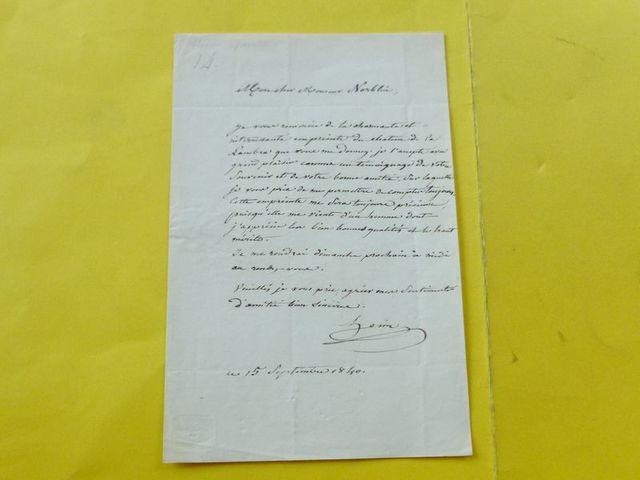 Mon cher Monsieur Norblin,
Je vous remercie de la charmante et
intéressante empreinte du de la
que vous me donnez. je l'accepte avec
grand plaisir comme un témoignage de votre
souvenir et de votre bonne amitié, sur laquelle
je vous prie de me permettre de compter toujours,
Cette empreinte me sera toujours précieuse,
puisqu'elle me vient d'un homme dont
j'apprécie les bien bonnes qualités et le haut
mérite.
Je me rendrai dimanche prochain à midi
au rendez-vous.
Veuillez je vous prie, agréer mes sentiments
d'amitié bien sincère.
heim
ce 15 Septembre 1840.